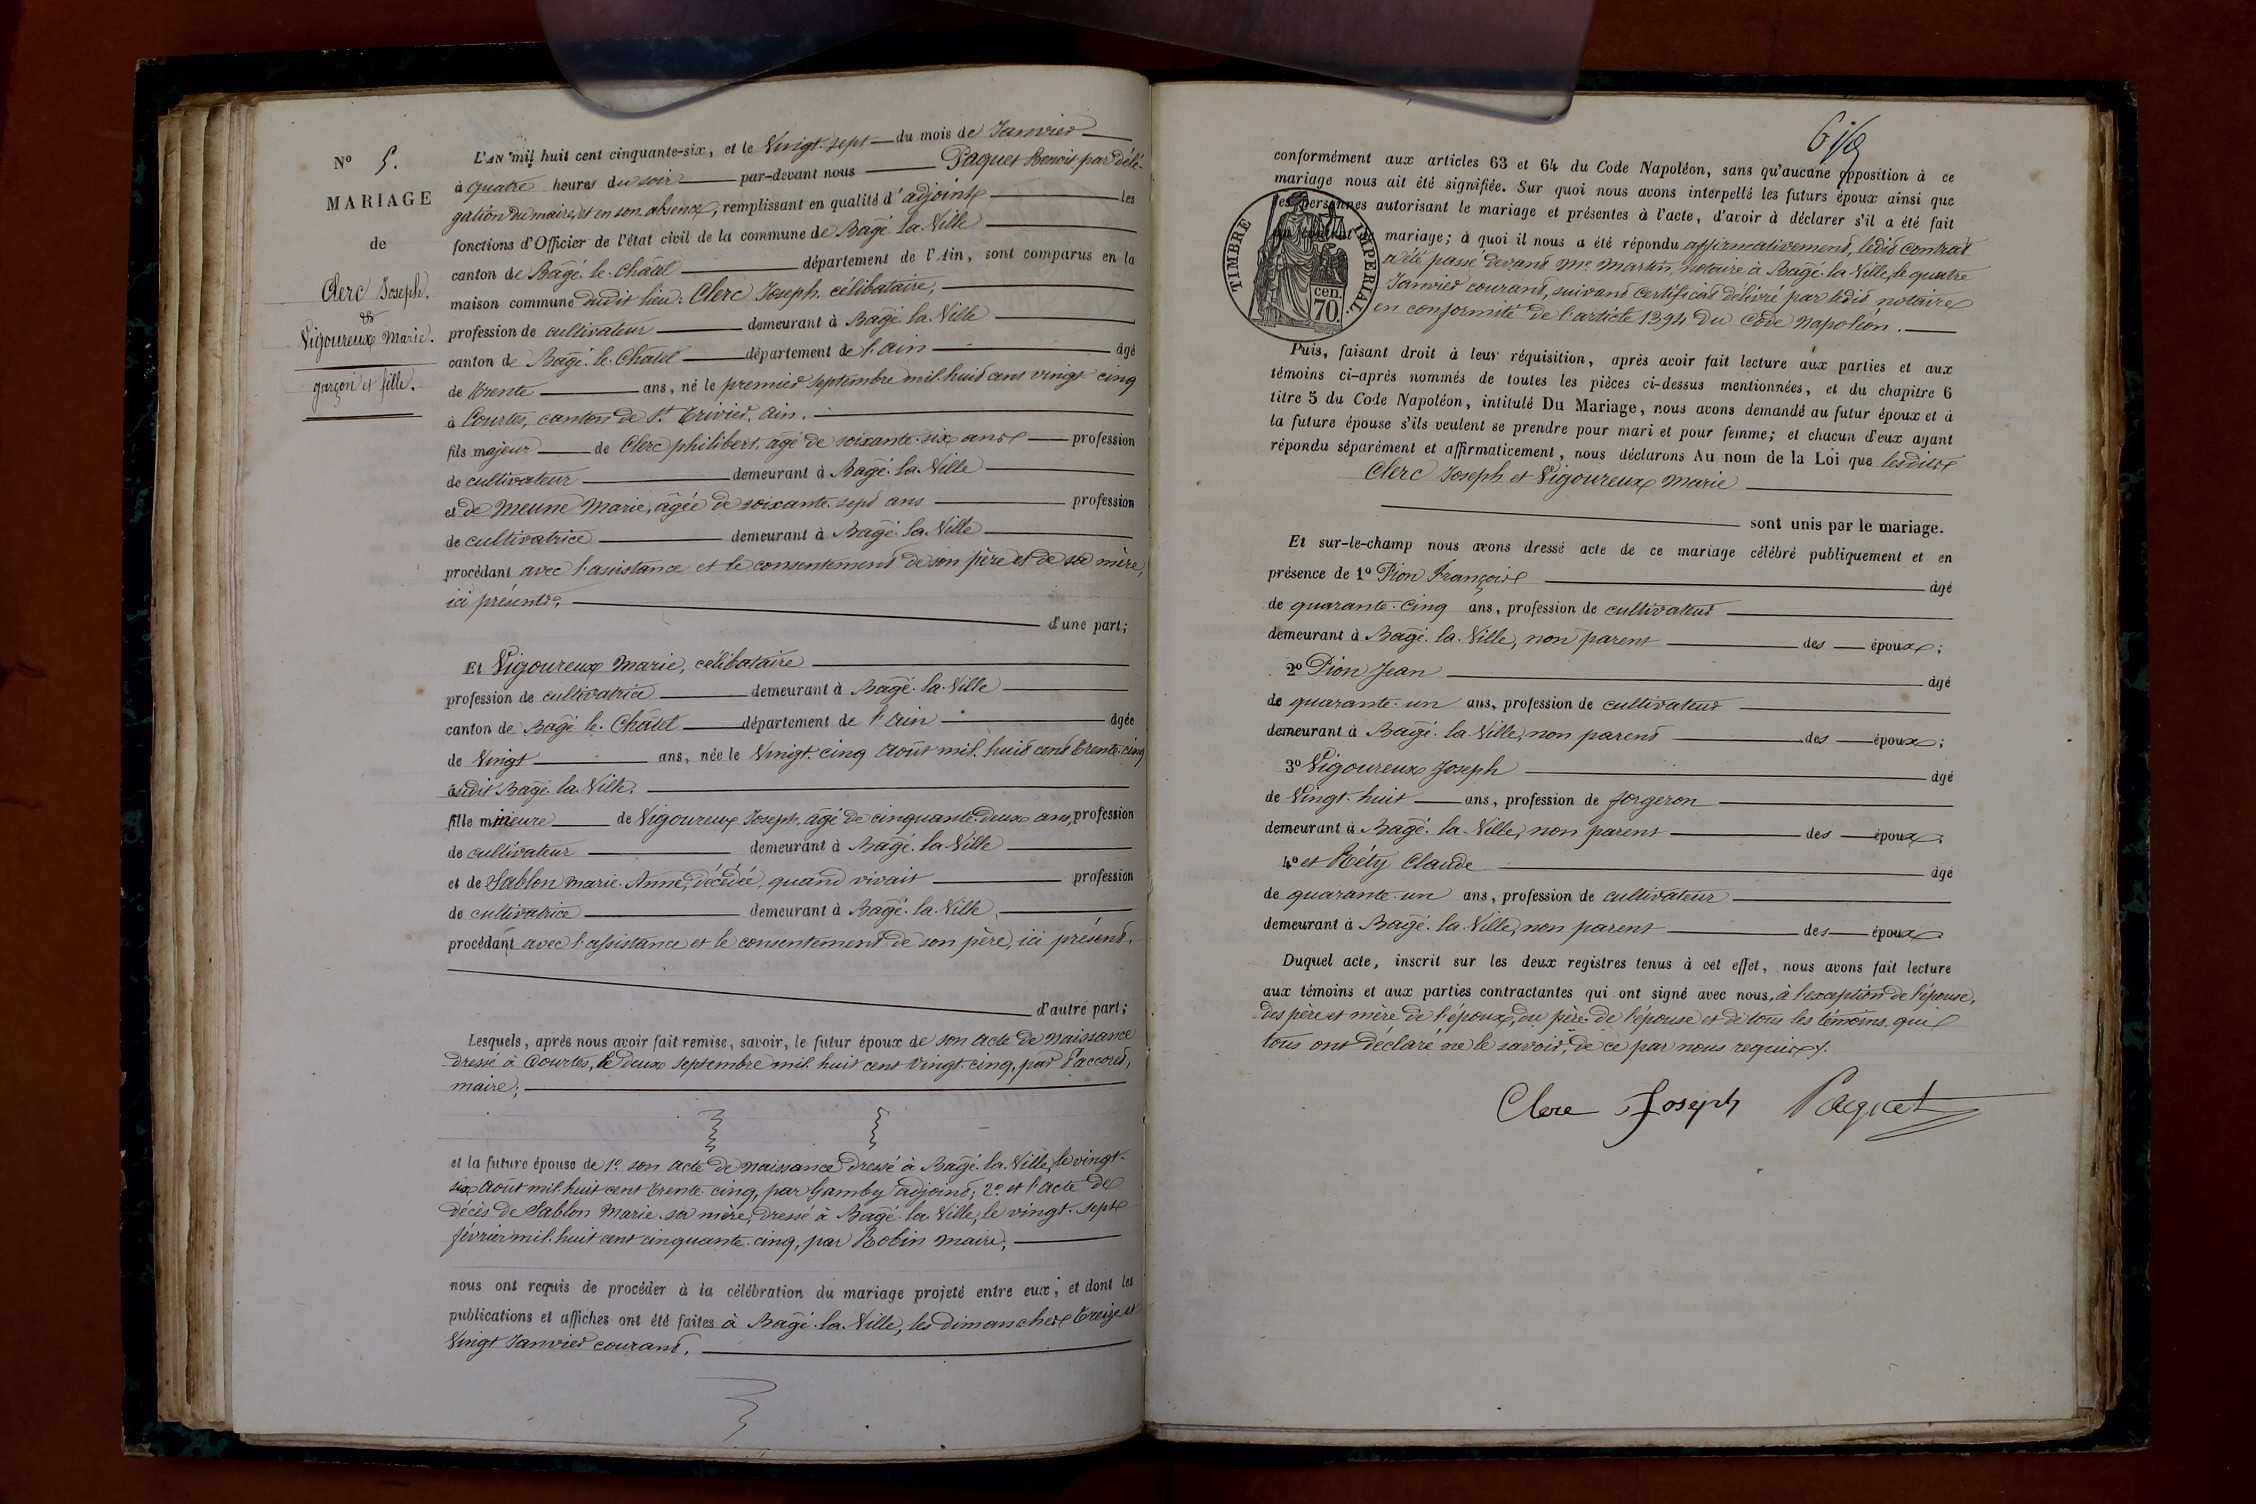 N° 5.
MARIAGE
de
Clerc Joseph.
et
Vigoureux Marie.
garçon et fille.
L'AN mil huit cent cinquante-six, et le Vingt-sept du mois de Janvier
à quatre heures du soir par-devant nous Paquet Benoit par délé-
gation du maire, et en son absence, remplissant en qualité d'adjoint les
fonctions d'Officier de l'état civil de la commune de Bagé-la-Ville
canton de Bagé-le-Châtel département de l'Ain, sont comparus en la
maison commune dudit lieu: Clerc Joseph, célibataire,
profession de cultivateur demeurant à Bagé-la-Ville
canton de Bagé-le-Châtel département de l'ain âgé
de trente ans, né le premier septembre mil-huit cent vingt-cinq
à Courtes, canton de St Trivier, Ain.
fils majeur de Clerc philibert, âgé de soixante-six ans profession
de cultivateur demeurant à Bagé-la-Ville
et de Meune Marie, âgée de soixante-sept ans profession
de cultivatrice demeurant à Bagé-la-Ville
procédant avec l'assistance et le consentement de son père et de sa mère,
ici présents,
d'une part;
Et Vigoureux Marie, célibataire
profession de cultivatrice demeurant à Bagé-la-Ville
canton de Bagé-le-Châtel département de l'ain âgée
de Vingt ans, née le Vingt-cinq août mil-huit cent trente-cinq
àudit Bagé-la-Ville.
fille mineure de Vigoureux Joseph, âgé de cinquante-deux ans, profession
de cultivateur demeurant à Bagé-la-Ville
et de Sablon Marie-Anne, décédée, quand vivait profession
de cultivatrice demeurant à Bagé-la-Ville,
procédant avec l'assistance et le consentement de son père, ici présent.
d'autre part;
Lesquels, après nous avoir fait remise, savoir, le futur époux de son acte de naissance
dressé à Courtes, le deux septembre mil-huit cent vingt-cinq, par Paccoud,
maire;
et la future épouse de 1° son acte de naissance dressé à Bagé-la-Ville, le vingt-
six août mil-huit cent trente-cinq, par Gamby adjoint; 2° et l'acte de
décès de Sablon Marie sa mère, dressé à Bagé-la-Ville, le vingt-sept
février mil-huit cent cinquante-cinq, par Robin maire;
nous ont requis de procéder à la célébration du mariage projeté entre eux, et dont les
publications et affiches ont été faites à Bagé-la-Ville, les dimanches treize et
Vingt Janvier courant.
conformément aux articles 63 et 64 du Code Napoléon, sans qu'aucune opposition à ce
mariage nous ait été signifiée. Sur quoi nous avons interpellé les futurs époux ainsi que
les personnes autorisant le mariage et présentes à l'acte, d'avoir à déclarer s'il a été fait
un contrat de mariage; à quoi il nous a été répondu affirmativement, ledit contrat
a été passé devant Me Martin, notaire à Bagé-la-Ville, le quatre
Janvier courant, suivant certificat délivré par ledit notaire
en conformité de l'article 1394 du Code Napoléon.
TIMBRE IMPERIAL
70 cen.
Puis, faisant droit à leur réquisition, après avoir fait lecture aux parties et aux
témoins ci-après nommés de toutes les pièces ci-dessus mentionnées, et du chapitre 6
titre 5 du Code Napoléon, intitulé Du Mariage, nous avons demandé au futur époux et à
la future épouse s'ils veulent se prendre pour mari et pour femme; et chacun d'eux ayant
répondu séparément et affirmativement, nous déclarons Au nom de la Loi que lesdits
Clerc Joseph et Vigoureux Marie
sont unis par le mariage.
Et sur-le-champ nous avons dressé acte de ce mariage célébré publiquement et en
présence de 1° Pion François âgé
de quarante-cinq ans, profession de cultivateur
demeurant à Bagé-la-Ville, non parent des époux;
2° Pion Jean âgé
de quarante-un ans, profession de cultivateur
demeurant à Bagé-la-Ville, non parent des époux;
3° Vigoureux Joseph âgé
de Vingt-huit ans, profession de forgeron
demeurant à Bagé-la-Ville, non parent des époux
4° et Réty Claude âgé
de quarante-un ans, profession de cultivateur
demeurant à Bagé-la-Ville, non parent des époux
Duquel acte, inscrit sur les deux registres tenus à cet effet, nous avons fait lecture
aux témoins et aux parties contractantes qui ont signé avec nous, à l'exception de l'épouse,
des père et mère de l'époux, du père de l'épouse et de tous les témoins qui
tous ont déclaré ne le savoir, de ce par nous requis.
Clerc Joseph Paquet